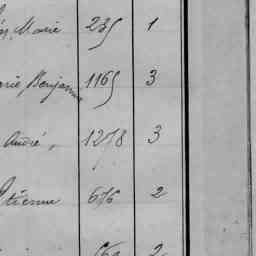 Marie 235 1
Benjamin 1165 3
André, 1278 3
Etienne 676 2
2